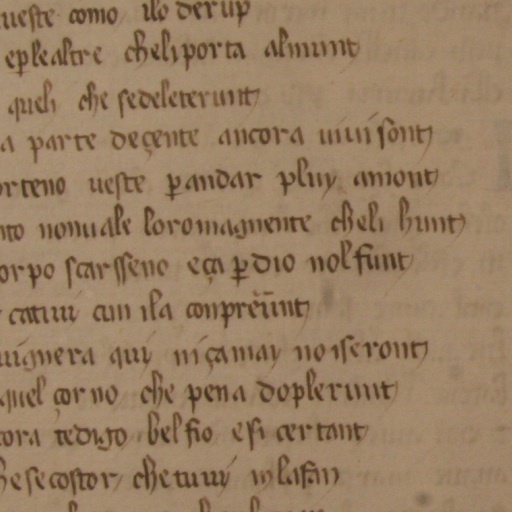 ueste como ilo derup
eꝑle altre cheli porta almunt
queli che sedeleterunt
a parte deçente ancora uiui sont
orteno ueste ꝑandar pluy amont
nto nonuale loromagnente cheli hunt
orpo scarsseno eça ꝑdio nolfunt
catiui cun isa conprēunt
uignera qui niçamai noiseront
quel çorno che pena doplerunt
cora tedigo bel fio esi certant
hesecostor chetuuij inlasan